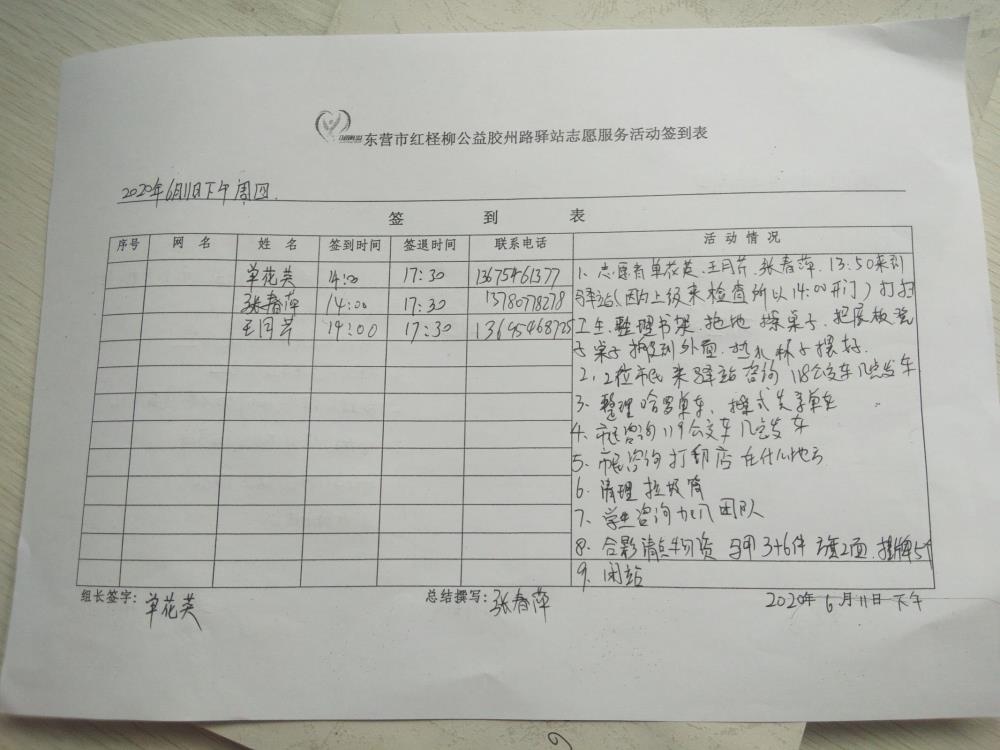 东营市红柽柳公益胶州路驿站志愿服务活动签到表
2020年6月11日下午周四
签到表
序号 网名 姓名 签到时间 签退时间 联系电话 活动情况
单花芙 14:00 17:30 13675461377
张春萍 14:00 17:30 1378078278
王月芹 14:00 17:30 13695468725
1、志愿者单花芙、王月芹、张春萍.13:50来到
驿站(因为上级来检查所以14:00开门)打扫
卫生.整理书架.拖地 擦桌子.把展板凳
子桌子搬到外面.热水杯子摆好.
2、2位市民来驿站咨询118公交车几点发车
3、整理哈罗单车、摆式共享单车
4、市民咨询119公交车几点发车
5、市民咨询打印店在什么地方
6、清理垃圾筒
7、学生咨询加入团队
8、合影清点物资 马甲3+6件 旗2面.挂牌5个
9、闭站
组长签字:单花芙 总结撰写:张春萍 2020年6月11日下午